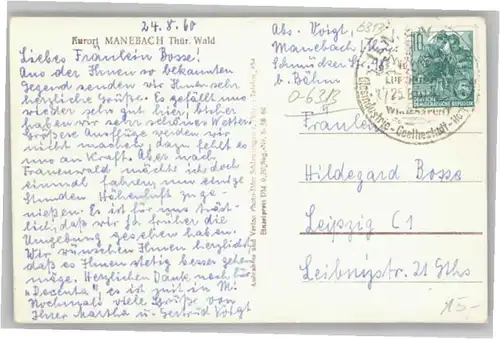 24.8.60
Kurort MANEBACH Thür. Wald
Liebes Fräulein Bosse!
Aus der Ihnen so bekannten
Gegend senden wir Ihnen sehr
herzliche Grüße. Es gefällt uns
wieder sehr gut hier, bisher
haben wir sehr schönes Wetter.
Größere Ausflüge werden wir
nicht machen, dazu fehlt es
uns an Kraft. Aber nach
Frauenwald möchte ich doch
einmal fahren um einige
Stunden Höhenluft zu ge-
nießen. Es ist für uns tröst-
lich, daß wir ja früher die
Umgebung gesehen haben.
Wir wünschen Ihnen herzlichst
daß es Ihnen stetig besser gehen
möge. Herzlichen Dank noch für
"Decenta", es ist zeit in M.
Nochmals viele Grüße von
Ihrer Martha u. Gertrud Voigt
Abs. Voigt,
Manebach Thür.
Schmücker Str.
b. Böhm
6313
O-6313
10
DEUTSCHE DEMOKRATISCHE REPUBLIK
Glasindustrie - Goethestadt
Fräulein
Hildegard Bosse
Leipzig C1
Leibnizstr. 21 Gths
15-